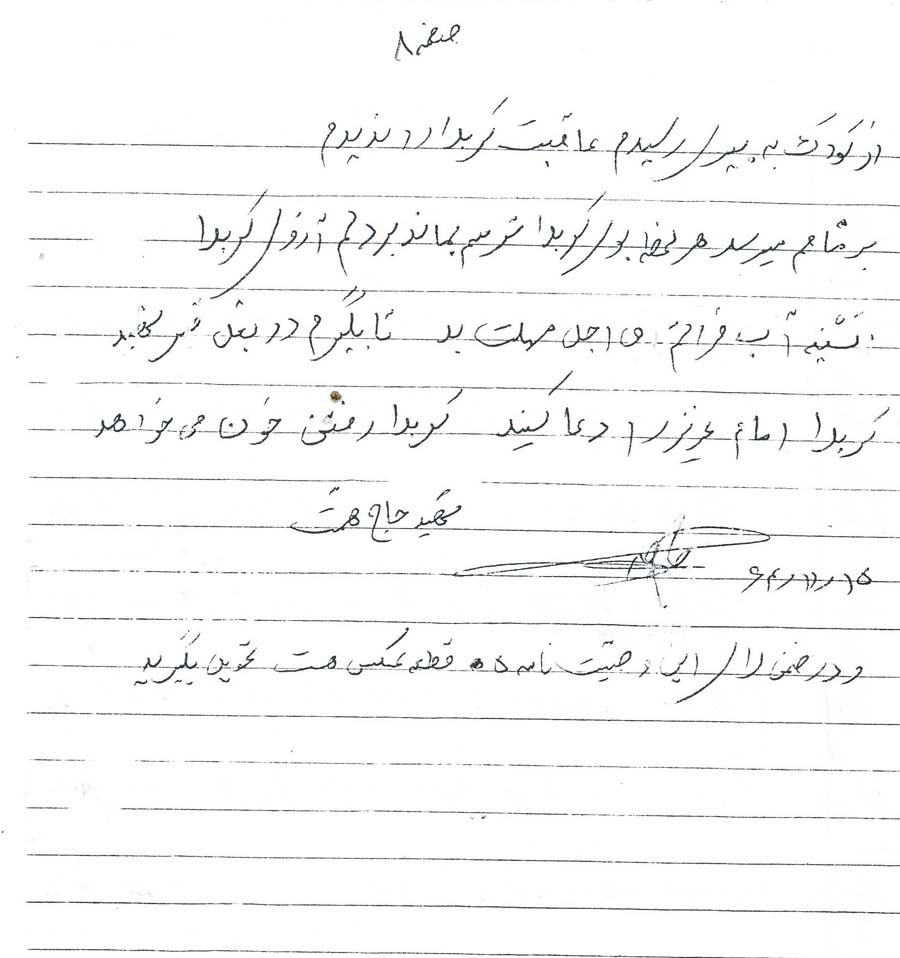 صفحه ۸
از کودک به پیری رسیدم عاقبت کربلا را ندیدم
بر مشامم میرسد هر لحظه بوی کربلا ترسم بماند بر دلم آرزوی کربلا
تشنه آب فراتم ای اجل مهلت بده تا بگیرم در بغل قبر شهید
کربلا امام عزیز را دعا کنید کربلا رفتن خون می‌خواهد
شهید حاج همت
۶۴/۱۱/۱۵
و در ضمن لای این وصیت نامه ۵ قطعه عکس هست تحویل بگیرید